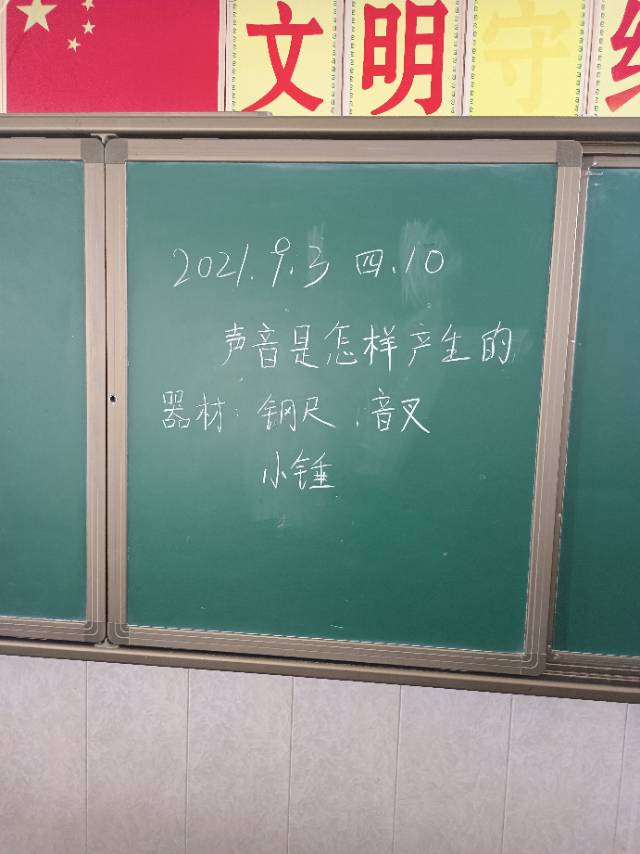 文明守纟
2021.9.3 四.10
声音是怎样产生的
器材：钢尺、音叉
小锤